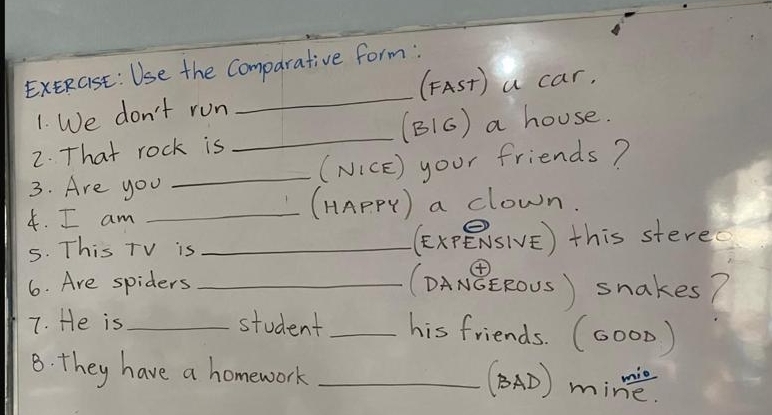 EXERCISE: Use the Comparative form:
1. We don't run ________ (FAST) a car.
2. That rock is ________ (BIG) a house.
3. Are you ________ (NICE) your friends?
4. I am ________ (HAPPY) a clown.
5. This TV is ________ (EXPENSIVE) ⊖ this stereo
6. Are spiders ________ (DANGEROUS) ⊕ snakes?
7. He is ______ student _____ his friends. (GOOD)
8. They have a homework ________ (BAD) mine. mio